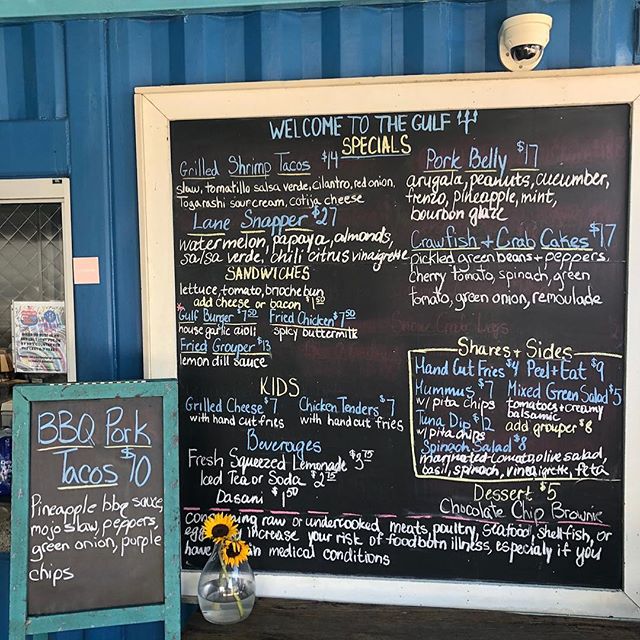 WELCOME TO THE GULF
SPECIALS
Grilled Shrimp Tacos $14
slaw, tomatillo salsa verde, cilantro, red onion,
Togarashi sour cream, cotija cheese
Lane Snapper $27
watermelon, papaya, almonds,
salsa verde, chili citrus vinaigrette
SANDWICHES
lettuce, tomato, brioche bun
add cheese or bacon $1.50
*Gulf Burger $7.50 Fried Chicken $7.50
house garlic aioli spicy buttermilk
Fried Grouper $13
lemon dill sauce
KIDS
Grilled Cheese $7 Chicken Tenders $7
with hand cut fries with hand cut fries
Beverages
Fresh Squeezed Lemonade $3.75
Iced Tea or Soda $2.75
Dasani $1.50
Pork Belly $17
arugala, peanuts, cucumber,
frenzo, pineapple, mint,
bourbon glaze
Crawfish + Crab Cakes $17
pickled green beans + peppers,
cherry tomato, spinach, green
tomato, green onion, remoulade
Snow Crab Legs
Shares + Sides
Hand Cut Fries $4 Peel + Eat $9
Hummus $7 Mixed Green Salad $5
w/ pita chips tomatoes + creamy
balsamic
Tuna Dip $12 add grouper $8
w/ pita chips
Spinach Salad $8
marinated tomato olive salad,
basil, spinach, vinaigrette, feta
Dessert $5
Chocolate Chip Brownie
raw or undercooked meats, poultry, seafood, shellfish, or
increase your risk of foodborn illness, especialy if you
have medical conditions
BBQ Pork
Tacos $10
Pineapple bbq sauce,
mojo slaw, peppers,
green onion, purple
chips